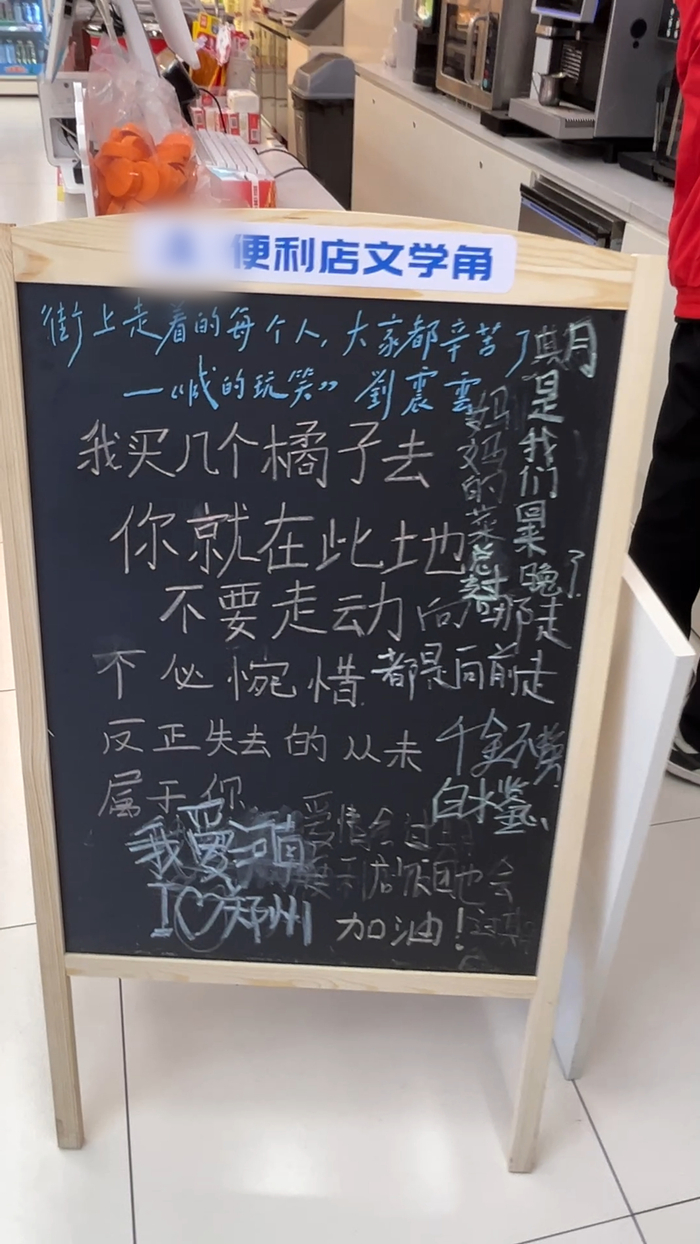 便利店文学角
街上走着的每个人,大家都辛苦了
—“咸的玩笑” 劉震雲
我买几个橘子去
你就在此地
不要走动
向那走
都是向前走
不必惋惜
反正失去的从未
属于你
千金不换
白水鉴
妈妈的菜
是我们
晚了
我爱河南
I♡郑州
加油!
爱情会过期
店饭团也会
过期